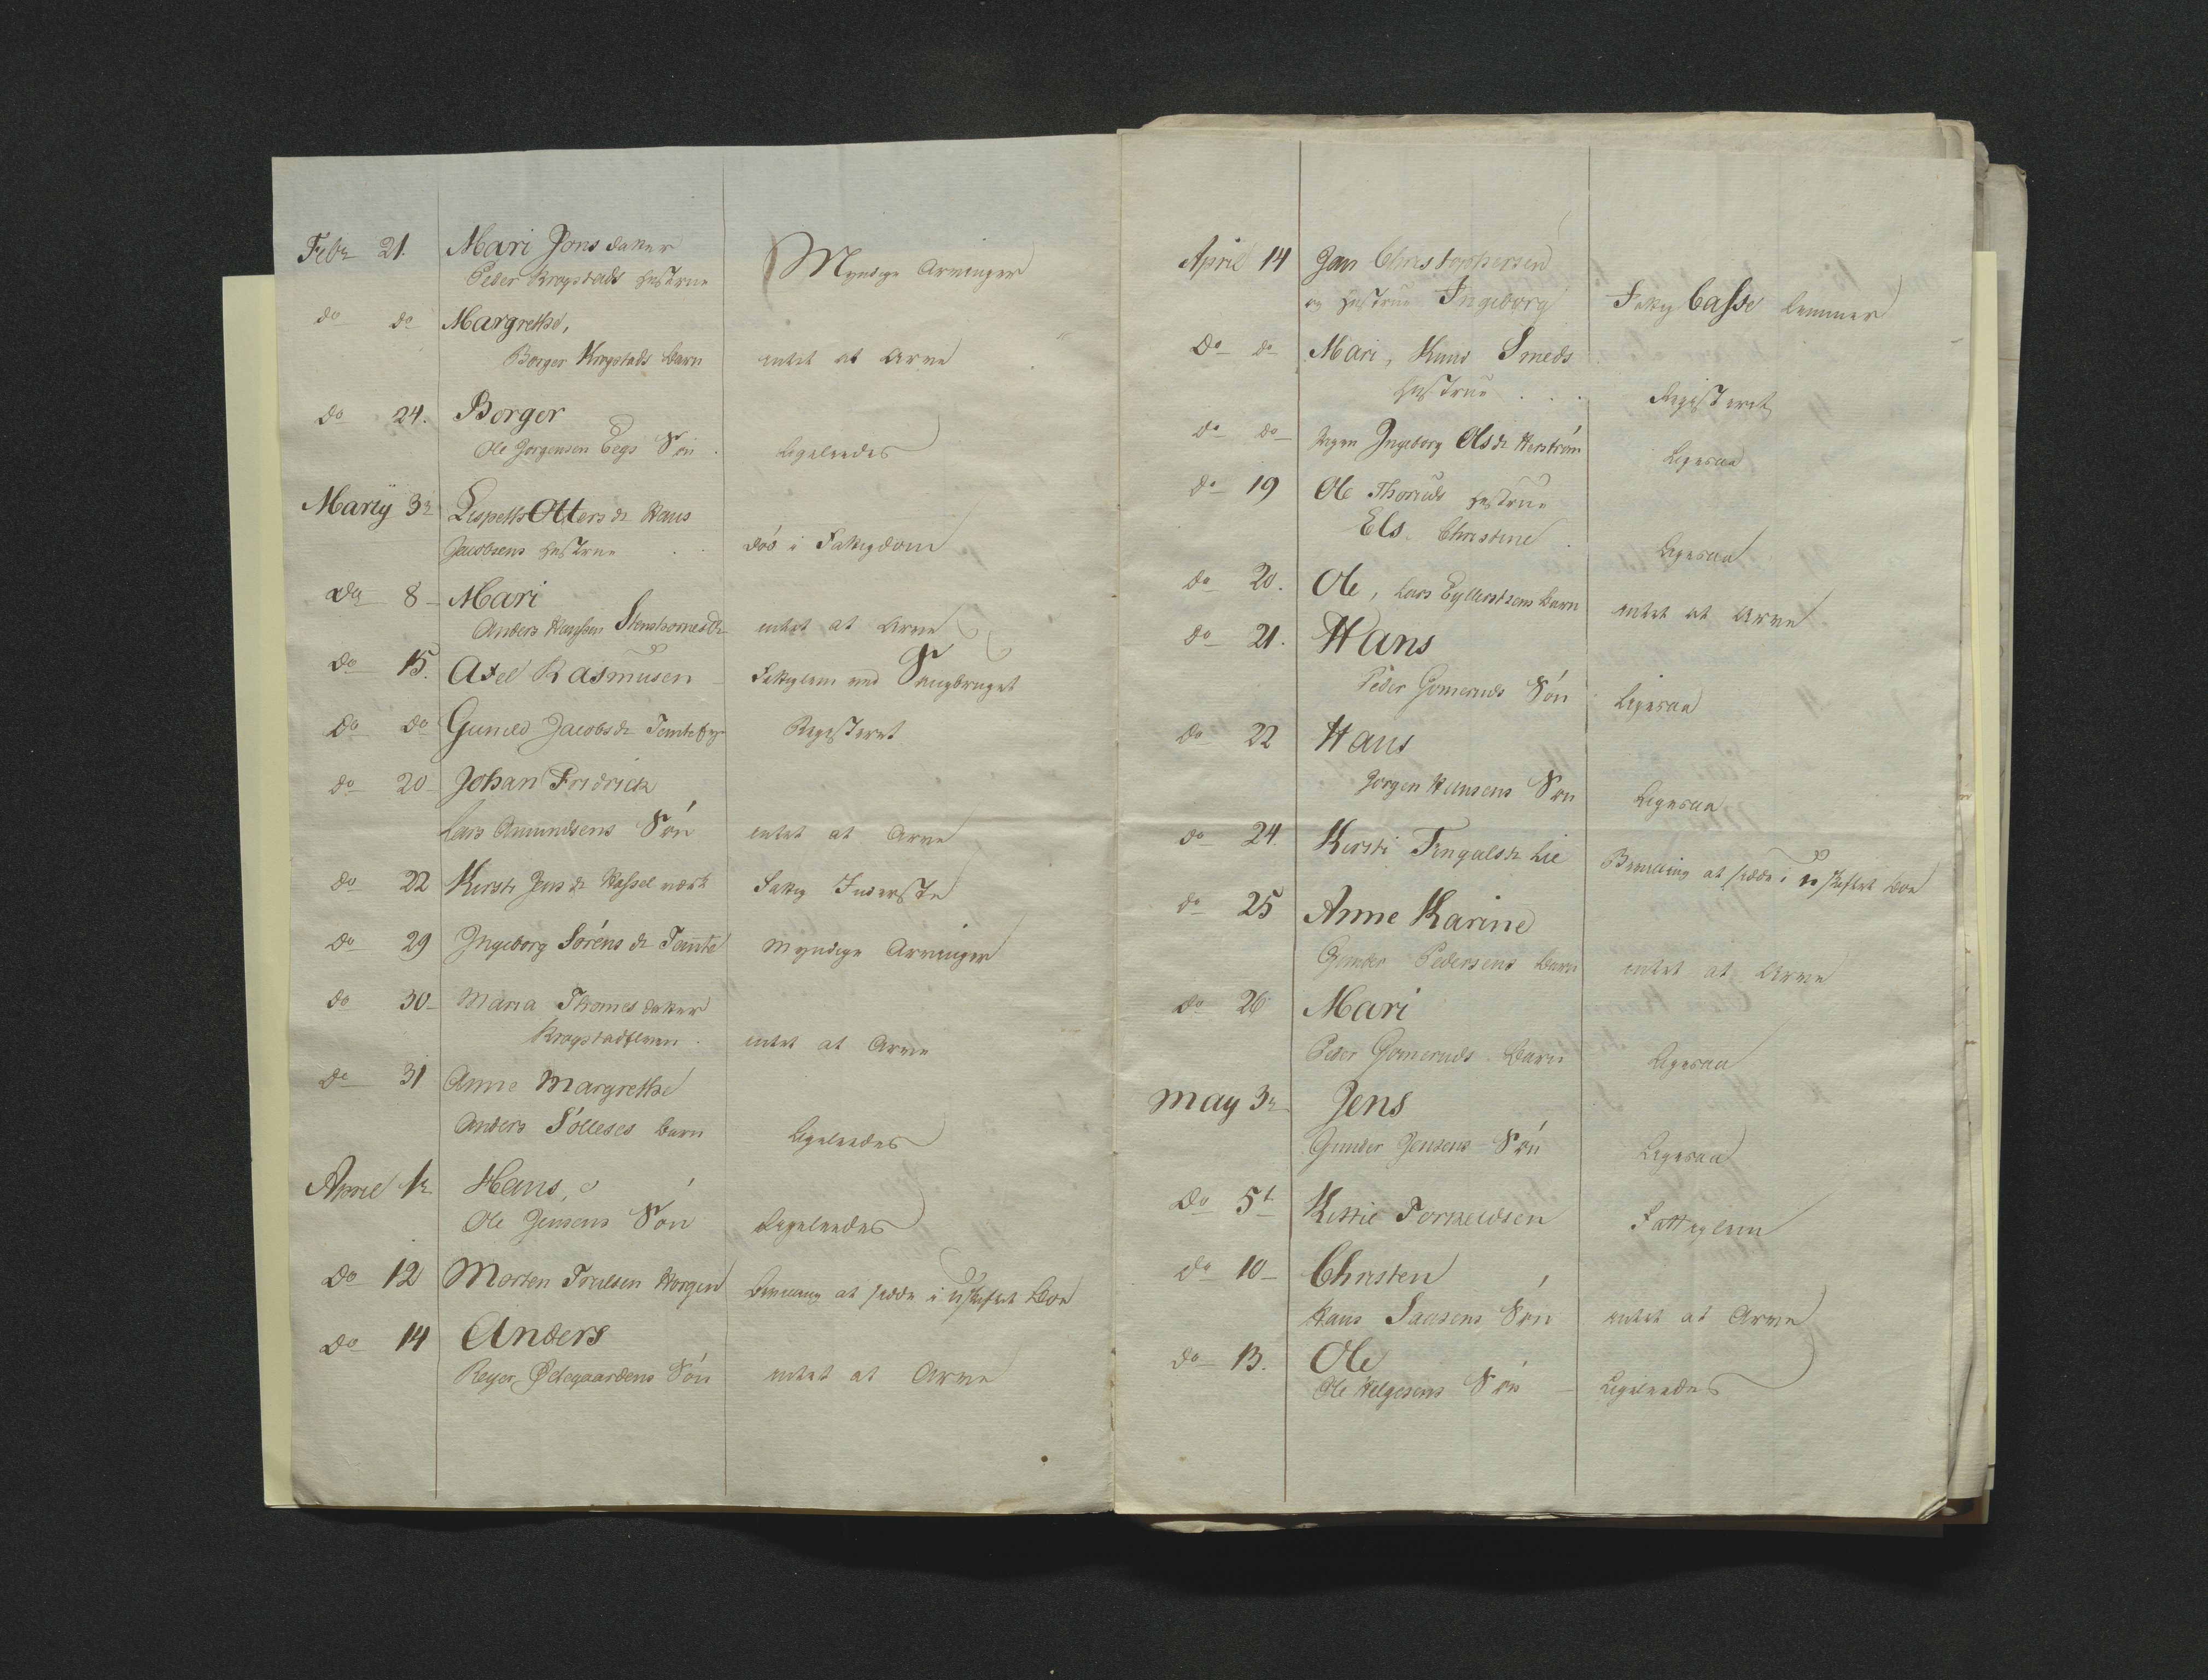 Febr 21. Mari Jonsdatter
Peder Krogstads Hustrue Myndige Arvinger
do do Margrethe,
Borger Krogstads barn intet at Arve
do 24. Borger
Ole Jorgensen Eegs Søn. Ligeleedes
Marty 3e Lispeth Otters dr Hans
Jacobsens Hustrue døò i Fattigdom
do 8 Mari
Anders Hanssen Stenshornes dr intet at Arve
do 15. Axel Rasmusen Fattiglem ved Saugbruget
do do Gunild Jacobs dr Registeret
do 20 Johan Fridrich
Lars Amundsens Søn intet at Arve
do 22 Kirsti Jens dr Hassel værk Fattig Inderste
do 29 Ingeborg Sørens dr Tamte Myndige Arvinger
do 30 Maria Thomesdatter
Krogstadfleven. intet at Arve
do 31 Anne Margrethe
Anders Sólleses barn Ligeleedes
April 1e Hans,
Ole Jensens Søn Ligeleedes
do 12 Morten Truelsen Horgen Bevilling at sidde i uskiftet Boe
do 14 Anders
Reyer Ødegaardens Søn intet at Arve
April 14 Jan Christophersen
og Hustrue Ingeborg Fattig Casse Lemmer
Do do Mari, Knud Smeds
Hustrue . . . Registeret
do do Pigen Ingeborg Ols dr Ligesaa
do 19 Ole Thoruds Hustrue
Els. Christine. Ligesaa
do 20. Ole, Lars Eyllertsens barn intet at Arve
do 21. Hans
Peder Gomeruds Søn Ligesaa
do 22 Hans
Jorgen Hansens Søn Ligesaa
do 24. Kirsti Fingals dr Lie Bevilling at sidde i uskiftet Boe
do 25 Anne Karine
Gunder Pedersens barn intet at Arve
do 26 Mari
Peder Gomeruds barn Ligesaa
May 3e Jens
Gunder Jensens Søn Ligesaa
do 5t Kittil Torkeldsen Fattiglem
do 10 Christen
Hans Saasens Søn intet at Arve
do 13. Ole
Ole Helgesens Søn Ligeleedes